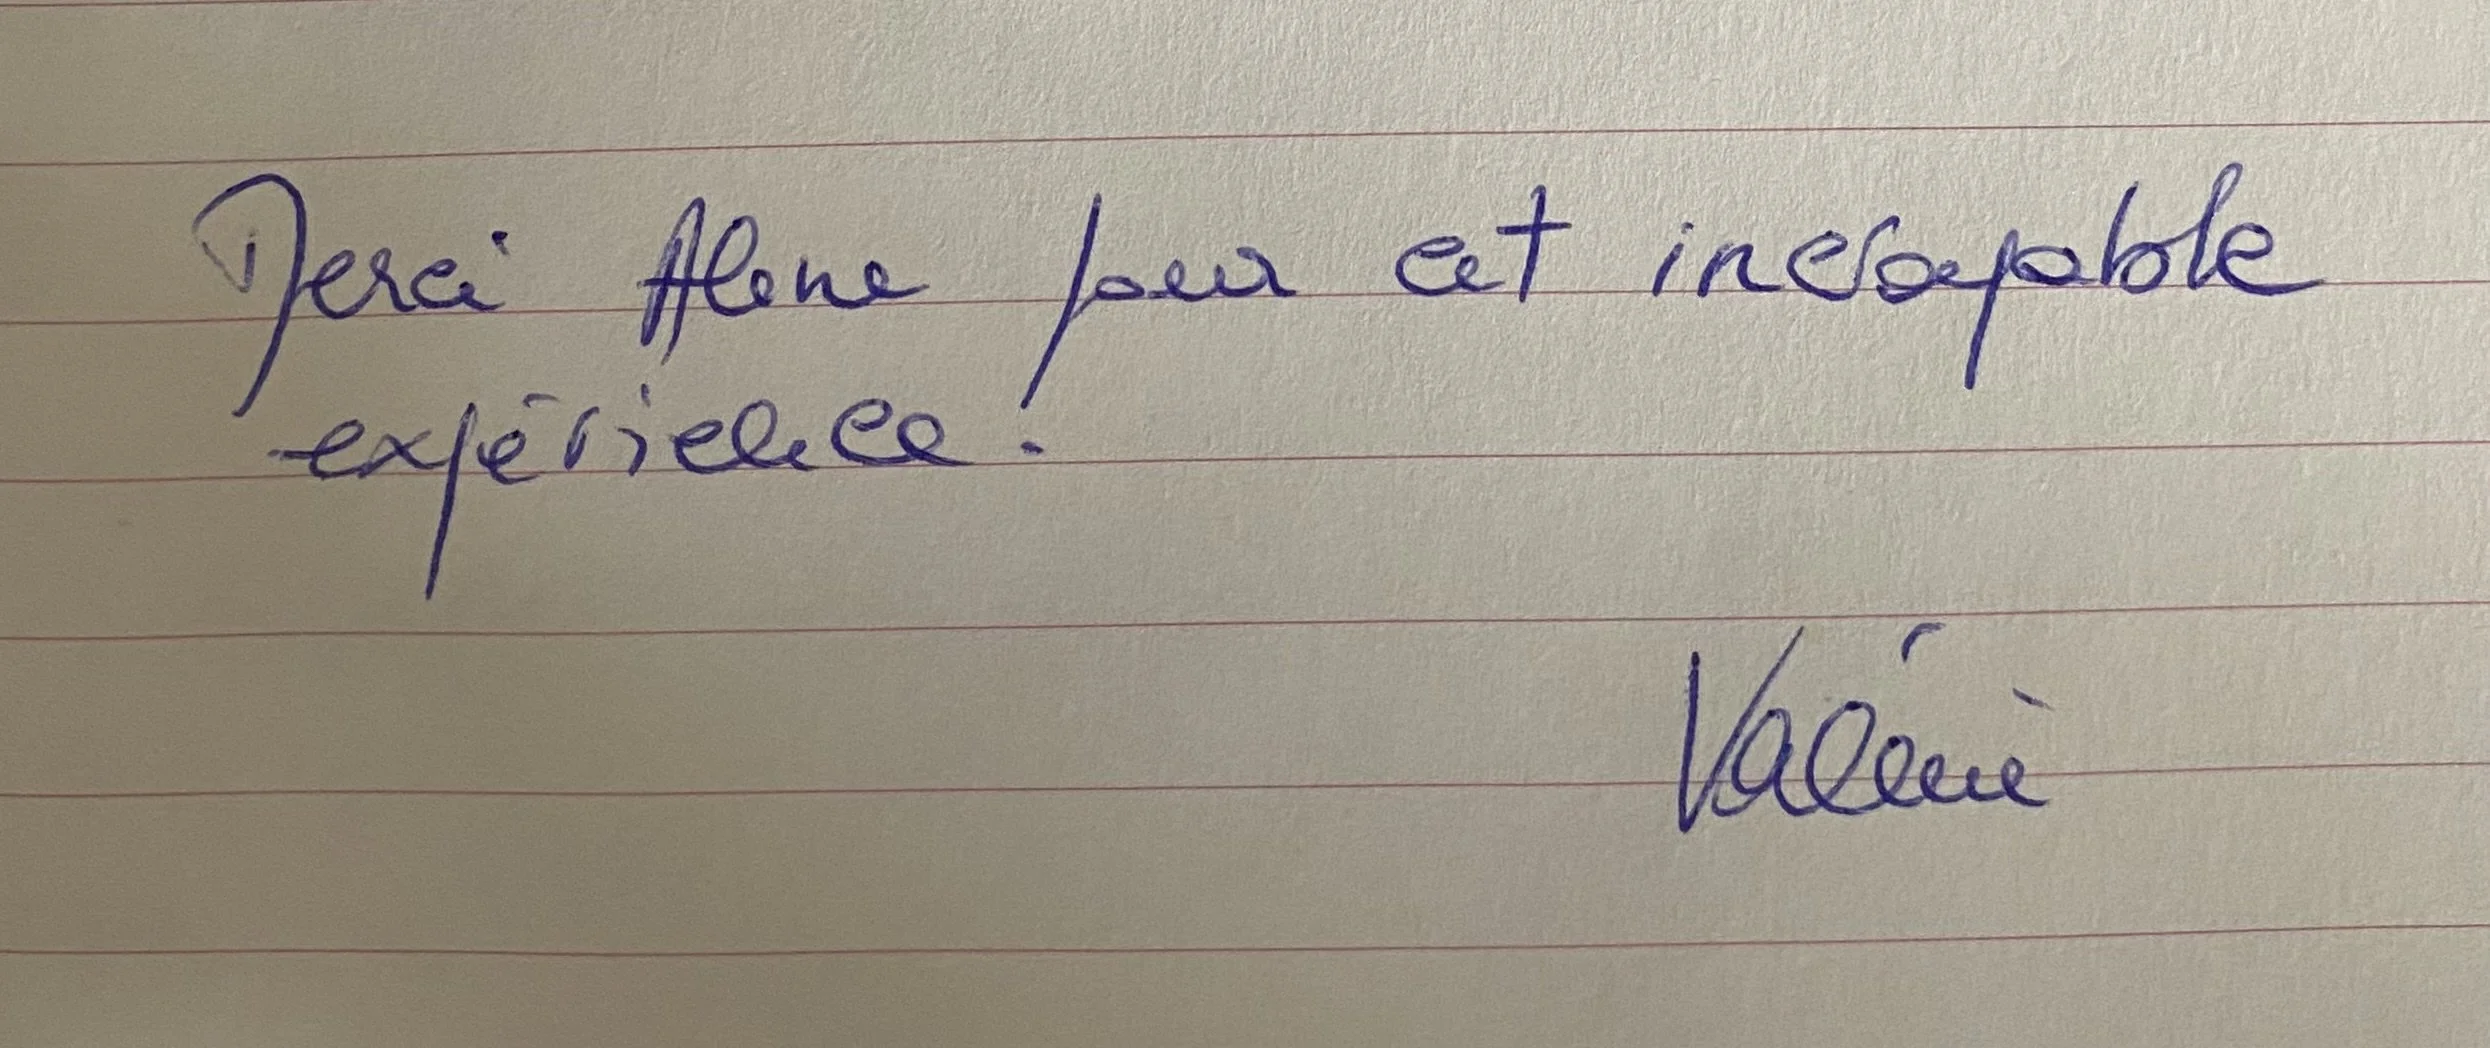 Merci Alene pour cet incroyable
expérience.
Valérie